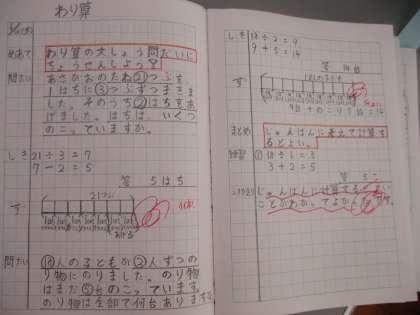 わり算
めあて
わり算の文しょう問だいに
ちょうせんしよう
問だい
あさがおのたね㉑つぶを、
1はちに③つぶずつまきま
した。そのうち②はちをあ
げました。はちは、いくつ
のこっていますか。
しき 21÷3=7
7-2=5
答 5はち
ず
21つぶ
あげる
問だい
⑱人の子どもが②人ずつの
り物にのりました。のり物
はまだ⑤台のこっています。
のり物は全部で何台あります
しき 18÷2=9
9+5=14
答 14台
ず
9台+のこり5台=14
まとめ
じゅんばんに考えて計算す
るとよい。
練習 ① 18÷6=3
3+2=5
答 5
じゅんばんに計算すると
ことがわか